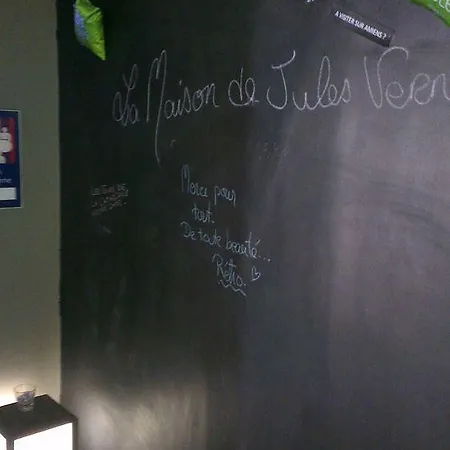 À VISITER SUR AMIENS ?
La Maison de Jules Vern
Merci pour
tout.
De toute beauté...
Rétro.